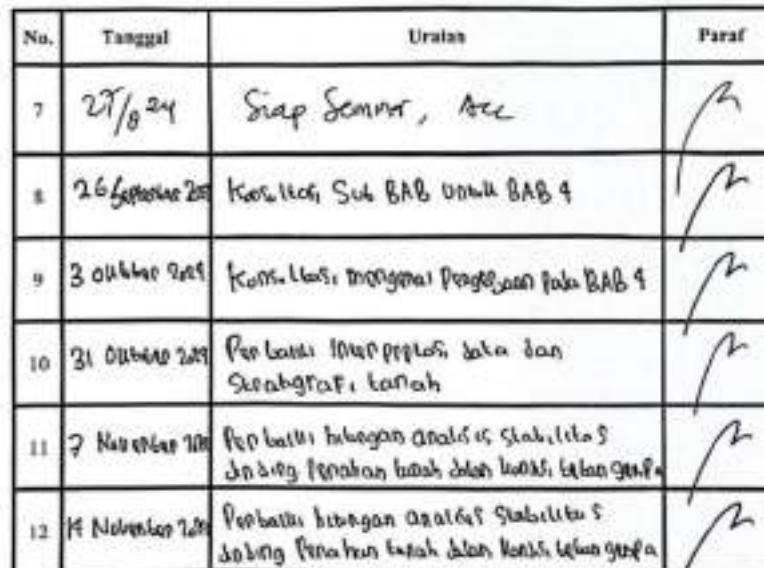 No. Tanggal Uraian Paraf
7 27/8 24 Siap Seminar, Acc
8 26 September Konsultasi Sub BAB untuk BAB 4
9 3 Oktober 2024 Konsultasi mengenai Pengerjaan Pada BAB 4
10 31 Oktober 2024 Perbaiki Interpretasi data dan
Stratigrafi tanah
11 7 November Perbaiki hitungan analisis stabilitas
dinding Penahan tanah dalam kondisi beban gempa
12 November Perbaiki hitungan analisis Stabilitas
dinding Penahan tanah dalam kondisi beban gempa